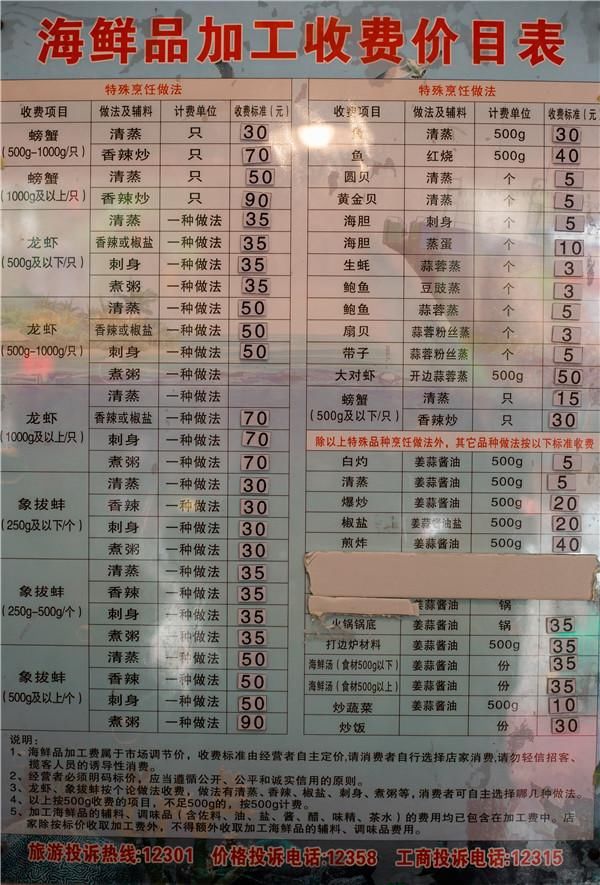 海鲜品加工收费价目表
特殊烹饪做法
收费项目 做法及辅料 计费单位 收费标准(元)
螃蟹 (500g-1000g/只) 清蒸 只 30
香辣炒 只 70
螃蟹 (1000g及以上/只) 清蒸 只 50
香辣炒 只 90
龙虾 (500g及以下/只) 清蒸 一种做法 35
香辣或椒盐 一种做法 35
刺身 一种做法 35
煮粥 一种做法 35
龙虾 (500g-1000g/只) 清蒸 一种做法 50
香辣或椒盐 一种做法 50
刺身 一种做法 50
煮粥 一种做法
龙虾 (1000g及以上/只) 清蒸 一种做法
香辣或椒盐 一种做法 70
刺身 一种做法 70
煮粥 一种做法 70
象拔蚌 (250g及以下/个) 清蒸 一种做法 30
香辣 一种做法 30
刺身 一种做法 30
煮粥 一种做法 30
象拔蚌 (250g-500g/个) 清蒸 一种做法 35
香辣 一种做法 35
刺身 一种做法 35
煮粥 一种做法 35
象拔蚌 (500g及以上/个) 清蒸 一种做法 50
香辣 一种做法 50
刺身 一种做法 50
煮粥 一种做法 90
特殊烹饪做法
收费项目 做法及辅料 计费单位 收费标准(元)
清蒸 500g 30
鱼 红烧 500g 40
圆贝 清蒸 个 5
黄金贝 清蒸 个 5
海胆 刺身 个 5
海胆 蒸蛋 个 10
生蚝 蒜蓉蒸 个 3
鲍鱼 豆豉蒸 个 3
鲍鱼 蒜蓉蒸 个 5
扇贝 蒜蓉粉丝蒸 个 3
带子 蒜蓉粉丝蒸 个 5
大对虾 开边蒜蓉蒸 500g 50
螃蟹 (500g及以下/只) 清蒸 只 15
香辣炒 只 30
除以上特殊品种烹饪做法外，其它品种做法按以下标准收费
白灼 姜蒜酱油 500g 5
清蒸 姜蒜酱油 500g 5
爆炒 姜蒜酱油 500g 20
椒盐 姜蒜酱油盐 500g 20
煎炸 姜蒜酱油 500g 40
姜蒜酱油 锅
火锅锅底 姜蒜酱油 锅 35
打边炉材料 姜蒜酱油 500g 35
海鲜汤(食材500g以下) 姜蒜酱油 份 35
海鲜汤(食材500g以上) 姜蒜酱油 份 35
炒蔬菜 姜蒜酱油 500g 10
炒饭 份 30
说明:
1、海鲜品加工费属于市场调节价，收费标准由经营者自主定价,请消费者自行选择店家消费,请勿轻信招客、
揽客人员的诱导性消费。
2、经营者必须明码标价，应当遵循公开、公平和诚实信用的原则。
3、龙虾、象拔蚌按个论做法收费，做法有清蒸、香辣、椒盐、刺身、煮粥等，消费者可自主选择哪几种做法。
4、以上按500g收费的项目，不足500g的，按500g计费。
5、加工海鲜品的辅料、调味品（含佐料、油、盐、酱、醋、味精、茶水）的费用均已包含在加工费中。店
家除按标价收取加工费外，不得额外收取加工海鲜品的辅料、调味品费用。
旅游投诉热线:12301 价格投诉电话:12358 工商投诉电话:12315